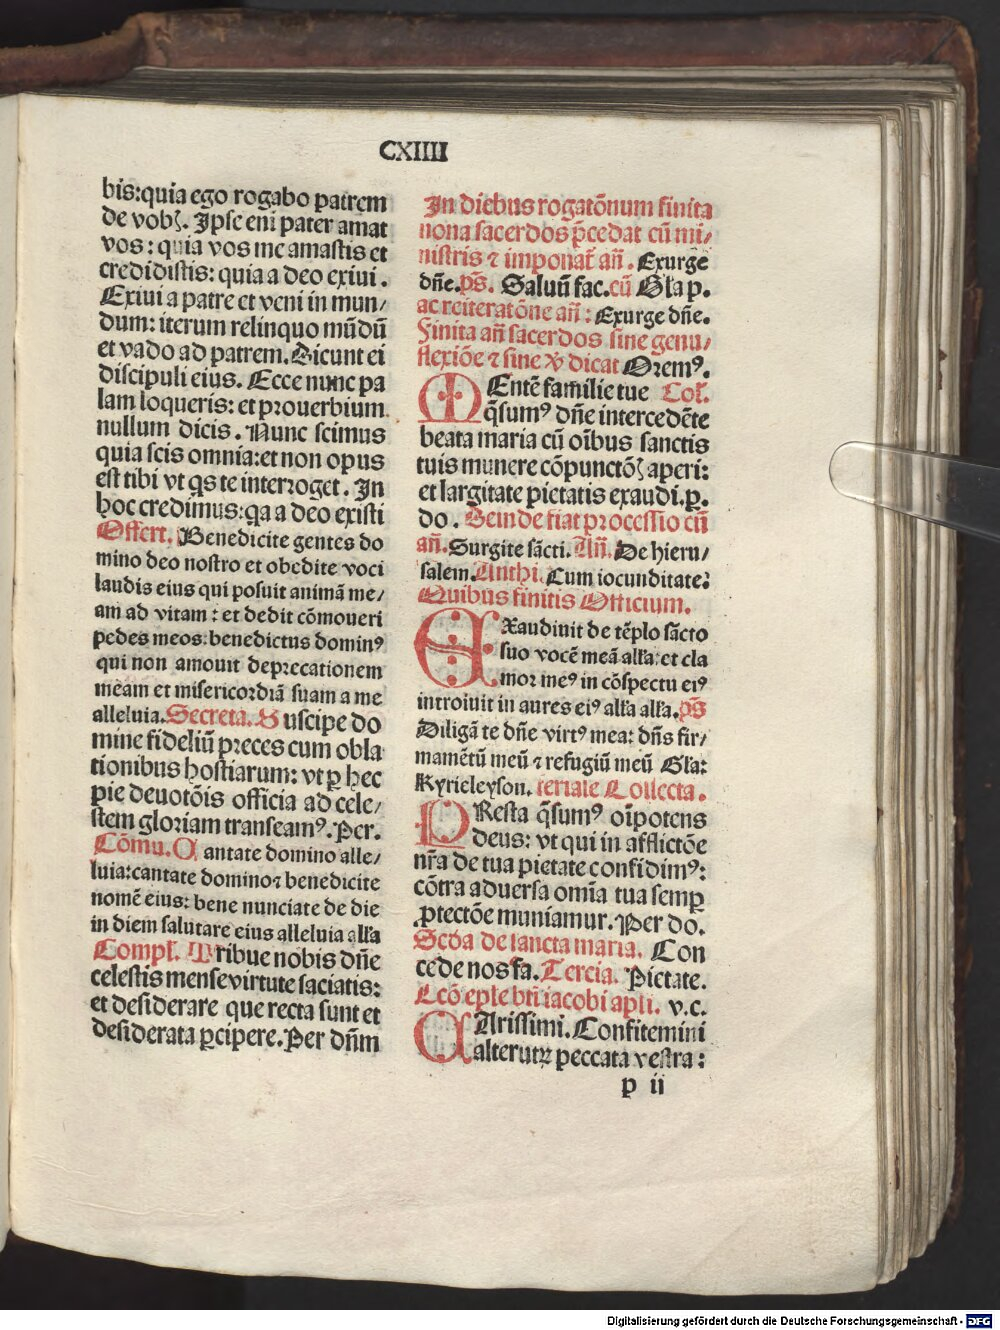 CXIIII
bis:quia ego rogabo patrem
de vobꝫ. Ipſe eni pater amat
vos: quia vos me amaſtis et
credidiſtis: quia a deo exiui.
Exiui a patre et veni in mun/
dum: iterum relinquo mūdū
et vado ad patrem. Dicunt ei
diſcipuli eius. Ecce nunc pa
lam loqueris: et prouerbium
nullum dicis. Nunc ſcimus
quia ſcis omnia:et non opus
eſt tibi vt qs te interroget. In
hoc credimus:qa a deo exiſti
Offert. Benedicite gentes do
mino deo noſtro et obedite voci
laudis eius qui poſuit animā me/
am ad vitam: et dedit cōmoueri
pedes meos:benedictus dominꝰ
qui non amouit deprecationem
meam et miſericordiā ſuam a me
alleluia. Secreta. Suſcipe do
mine fideliū preces cum obla
tionibus hoſtiarum: vt ꝑ hec
pie deuotōis officia ad cele/
ſtem gloriam tranſeamꝰ. Per.
Cōmu. Cantate domino alle/
luia:cantate domino⁊ benedicite
nomē eius: bene nunciate de die
in diem salutare eius alleluia alľa
Compľ. Tribue nobis dn̄e
celeſtis menſe virtute ſaciatis:
et deſiderare que recta ſunt et
deſiderata ꝑcipere. Per dn̄m
In diebus rogatōnum finita
nona ſacerdos p̄cedat cū mi/
niſtris ⁊ imponat̄ an̄. Exurge
dn̄e. ps̄. Saluū fac. cū Gľa p.
ac reiteratōne an̄: Exurge dn̄e.
Finita an̄ ſacerdos ſine genu/
flexiōe ⁊ ſine ꝟ dicat Oremꝰ.
Mentē familie tue Coľ.
q̄ſumꝰ dn̄e intercedēte
beata maria cū oībus ſanctis
tuis munere cōpunctōꝫ aperi:
et largitate pietatis exaudi. p.
do. Deinde fiat proceſſio cū
an̄. Surgite ſācti. An̄. De hieru/
ſalem. Anthi. Cum iocunditate:
Quibus finitis Officium.
Exaudiuit de tēplo ſācto
ſuo vocē meā alľa: et cla
mor meꝰ in cōſpectu eiꝰ
introiuit in aures eiꝰ alľa alľa. ps̄
Diligā te dn̄e virtꝰ mea: dn̄s fir/
mamētū meū ⁊ refugiū meū Gľa:
Kyrieleyſon. feriale Collecta.
Preſta q̄ſumꝰ oīpotens
deus: vt qui in afflictōe
nr̄a de tua pietate confidimꝰ:
cōtra aduerſa om̄ia tua ſemꝑ
ꝓtectōe muniamur. Per do.
Scd̄a de ſancta maria. Con
cede nos fa. Tercia. Pietate.
Lcō eple bt̄i iacobi apľi. v.c.
Cariſſimi. Confitemini
alterutꝝ peccata veſtra:
p ii
Digitalisierung gefördert durch die Deutsche Forschungsgemeinschaft - DFG